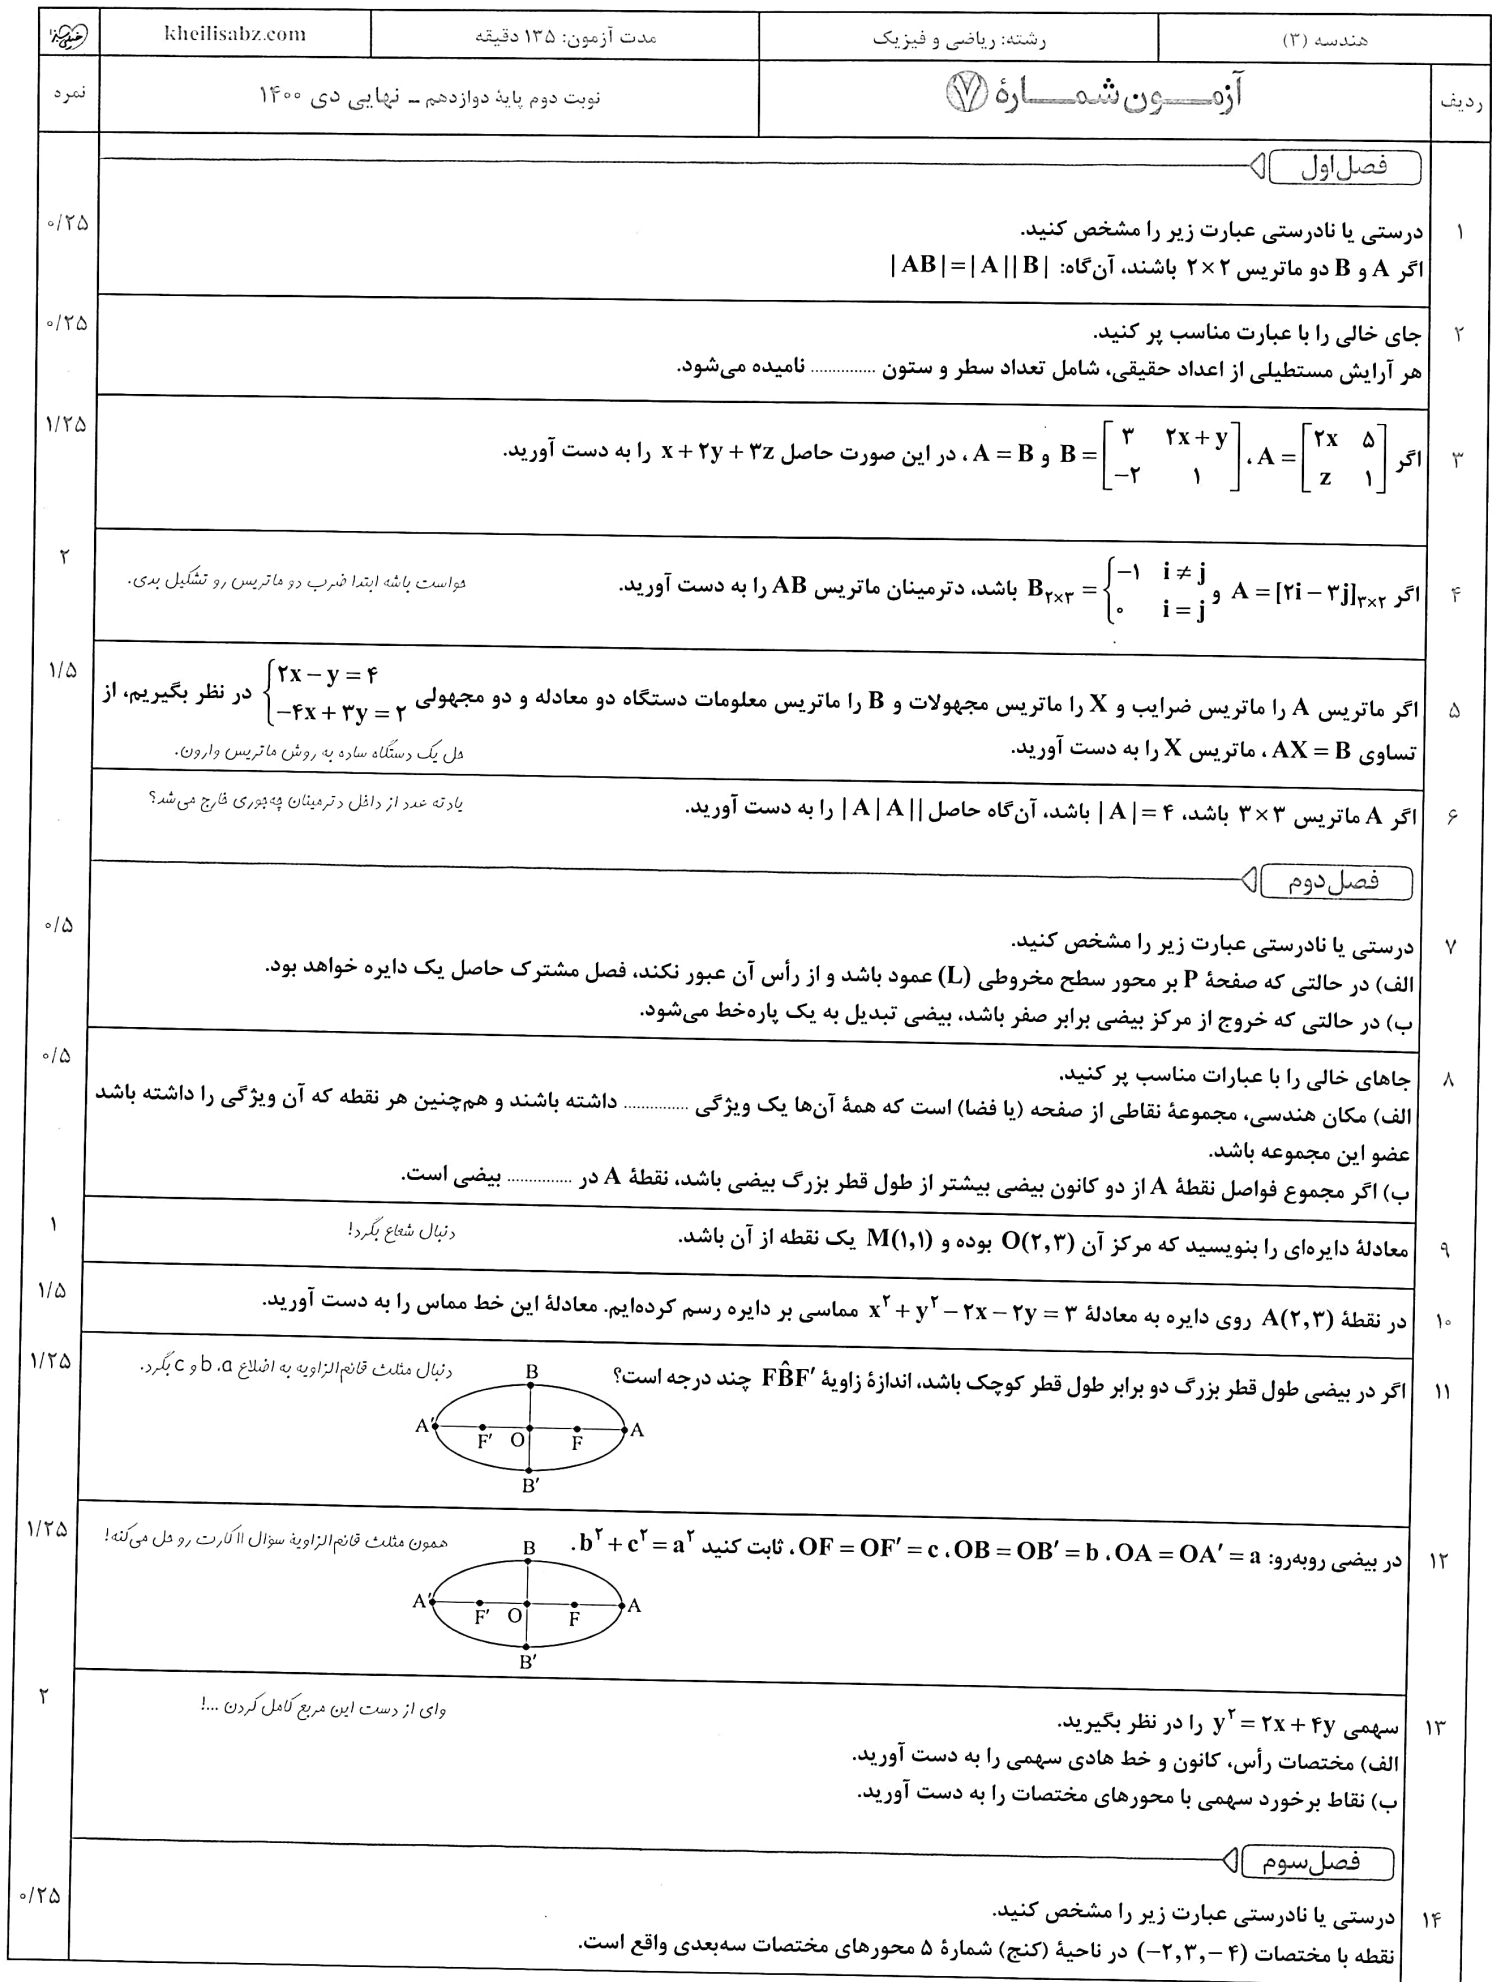 هندسه (۳)
رشته: ریاضی و فیزیک
مدت آزمون: ۱۳۵ دقیقه
kheilisabz.com
ردیف
آزمون شمارهٔ ۷
نوبت دوم پایهٔ دوازدهم ـ نهایی دی ۱۴۰۰
نمره
فصل اول
۱
درستی یا نادرستی عبارت زیر را مشخص کنید.
۰/۲۵
اگر A و B دو ماتریس ۲×۲ باشند، آن‌گاه: |AB|=|A||B|
۲
جای خالی را با عبارت مناسب پر کنید.
۰/۲۵
هر آرایش مستطیلی از اعداد حقیقی، شامل تعداد سطر و ستون ............... نامیده می‌شود.
۳
اگر A = [۲x ۵ ; z ۱]، B = [۳ ۲x+y ; −۲ ۱] و A = B، در این صورت حاصل x+۲y+۳z را به دست آورید.
۱/۲۵
۴
اگر A = [۲i − ۳j]۳×۲ و B۲×۳ = { −۱ i ≠ j ; ۰ i = j باشد، دترمینان ماتریس AB را به دست آورید.
حواست باشه ابتدا ضرب دو ماتریس رو تشکیل بدی.
۲
۵
اگر ماتریس A را ماتریس ضرایب و X را ماتریس مجهولات و B را ماتریس معلومات دستگاه دو معادله و دو مجهولی { ۲x − y = ۴ ; −۴x + ۳y = ۲ در نظر بگیریم، از
۱/۵
تساوی AX = B، ماتریس X را به دست آورید.
حل یک دستگاه ساده به روش ماتریس وارون.
۶
اگر A ماتریس ۳×۳ باشد، |A| = ۴ باشد، آن‌گاه حاصل |A|A|| را به دست آورید.
یادته عدد از داخل دترمینان چه‌جوری خارج می‌شد؟
فصل دوم
۷
درستی یا نادرستی عبارت زیر را مشخص کنید.
۰/۵
الف) در حالتی که صفحهٔ P بر محور سطح مخروطی (L) عمود باشد و از رأس آن عبور نکند، فصل مشترک حاصل یک دایره خواهد بود.
ب) در حالتی که خروج از مرکز بیضی برابر صفر باشد، بیضی تبدیل به یک پاره‌خط می‌شود.
۸
جاهای خالی را با عبارات مناسب پر کنید.
۰/۵
الف) مکان هندسی، مجموعهٔ نقاطی از صفحه (یا فضا) است که همهٔ آن‌ها یک ویژگی ............... داشته باشند و هم‌چنین هر نقطه که آن ویژگی را داشته باشد
عضو این مجموعه باشد.
ب) اگر مجموع فواصل نقطهٔ A از دو کانون بیضی بیشتر از طول قطر بزرگ بیضی باشد، نقطهٔ A در ............... بیضی است.
۹
معادلهٔ دایره‌ای را بنویسید که مرکز آن O(۲,۳) بوده و M(۱,۱) یک نقطه از آن باشد.
دنبال شعاع بگرد!
۱
۱۰
در نقطهٔ A(۲,۳) روی دایره به معادلهٔ x² + y² − ۲x − ۲y = ۳ مماسی بر دایره رسم کرده‌ایم. معادلهٔ این خط مماس را به دست آورید.
۱/۵
۱۱
اگر در بیضی طول قطر بزرگ دو برابر طول قطر کوچک باشد، اندازهٔ زاویهٔ FB̂F′ چند درجه است؟
دنبال مثلث قائم‌الزاویه به اضلاع a، b و c بگرد.
۱/۲۵
B
A′ F′ O F A
B′
۱۲
در بیضی روبه‌رو: OA = OA′ = a، OB = OB′ = b، OF = OF′ = c، ثابت کنید b² + c² = a².
همون مثلث قائم‌الزاویهٔ سؤال ۱۱ کارت رو حل می‌کنه!
۱/۲۵
B
A′ F′ O F A
B′
۱۳
سهمی y² = ۲x + ۴y را در نظر بگیرید.
وای از دست این مربع کامل کردن ...!
۲
الف) مختصات رأس، کانون و خط هادی سهمی را به دست آورید.
ب) نقاط برخورد سهمی با محورهای مختصات را به دست آورید.
فصل سوم
۱۴
درستی یا نادرستی عبارت زیر را مشخص کنید.
۰/۲۵
نقطه با مختصات (−۲,۳,−۴) در ناحیهٔ (کنج) شمارهٔ ۵ محورهای مختصات سه‌بعدی واقع است.